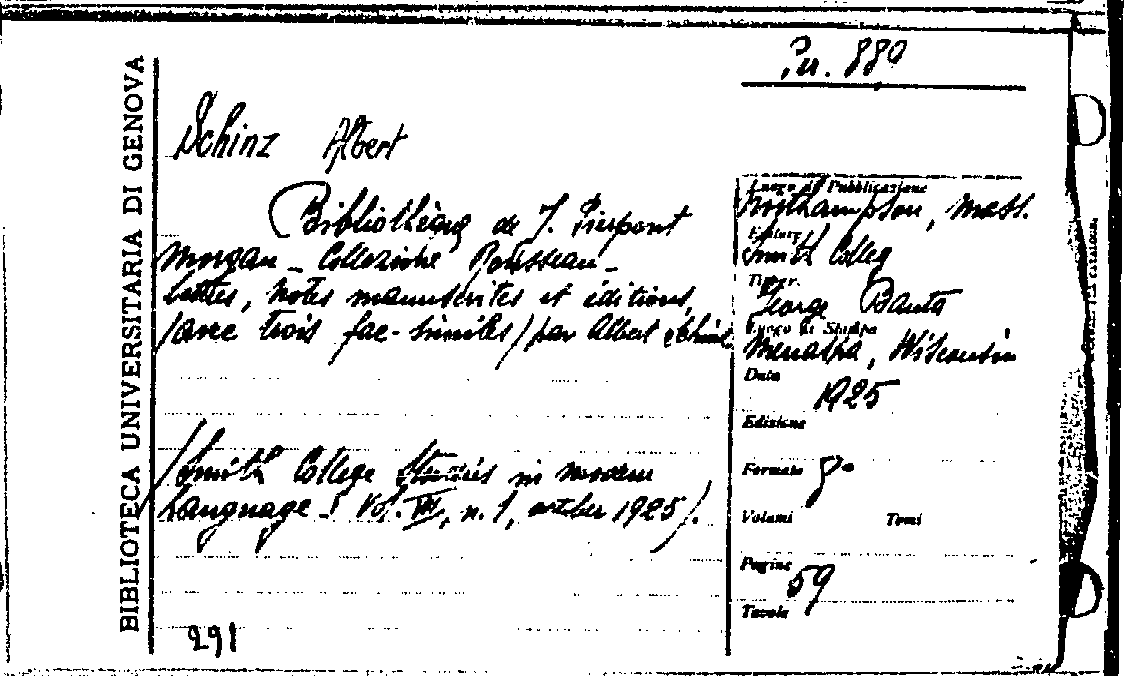 BIBLIOTECA UNIVERSITARIA DI GENOVA
Pu. 880
Schinz Albert
Bibliothèque de J. Pierpont
Morgan - Collezione Rousseau -
lettres, notes manuscrites et éditions,
(avec trois fac-similés) par Albert Schinz
(Smith College Studies in modern
Languages Vol. VII, n. 1, october 1925).
291
Luogo di Pubblicazione
Northampton, Mass.
Editore
Smith College
Tipogr.
George Banta
Luogo di Stampa
Menasha, Wisconsin
Data
1925
Edizione
Formato 8°
Volumi Tomi
Pagine
59
Tavole